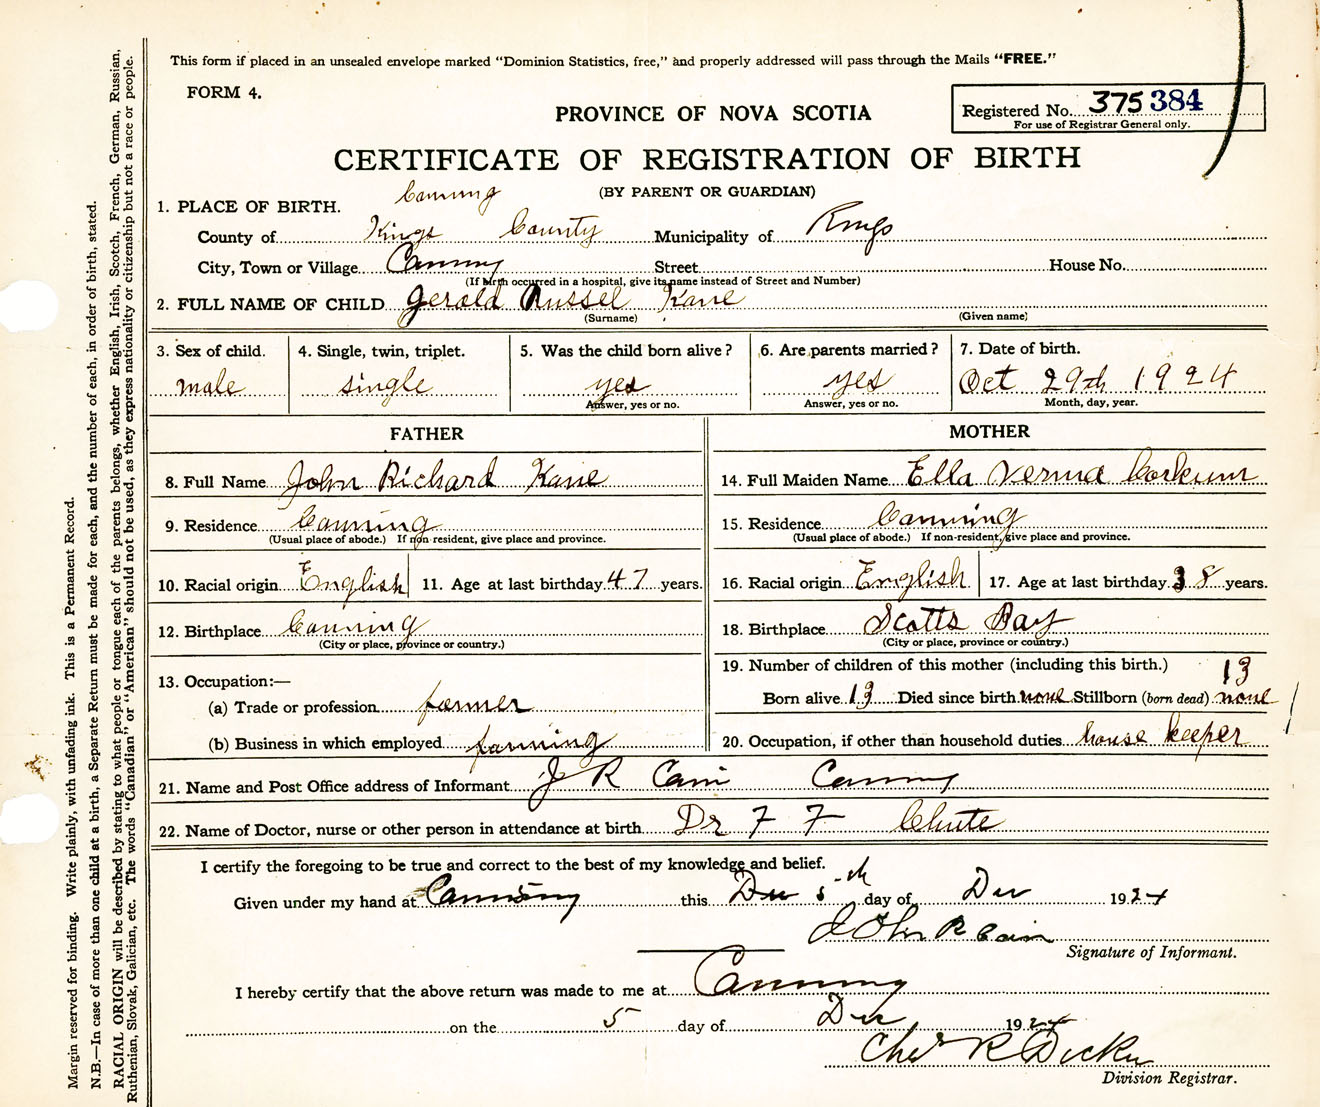 This form if placed in an unsealed envelope marked “Dominion Statistics, free,” and properly addressed will pass through the Mails “FREE.”
FORM 4.
PROVINCE OF NOVA SCOTIA
Registered No. 375 384
For use of Registrar General only.
CERTIFICATE OF REGISTRATION OF BIRTH
(BY PARENT OR GUARDIAN)
Canning
1. PLACE OF BIRTH.
County of Kings County Municipality of Kings
City, Town or Village Canning Street House No.
(If birth occurred in a hospital, give its name instead of Street and Number)
2. FULL NAME OF CHILD Gerald Russel Kane
(Surname) (Given name)
3. Sex of child. 4. Single, twin, triplet. 5. Was the child born alive? 6. Are parents married? 7. Date of birth.
male single yes yes Oct 29th 1924
Answer, yes or no. Answer, yes or no. Month, day, year.
FATHER MOTHER
8. Full Name John Richard Kane 14. Full Maiden Name Ella Verna Corkum
9. Residence Canning 15. Residence Canning
(Usual place of abode.) If non-resident, give place and province. (Usual place of abode.) If non-resident, give place and province.
10. Racial origin English 11. Age at last birthday 47 years. 16. Racial origin English 17. Age at last birthday 38 years.
12. Birthplace Canning 18. Birthplace Scotts Bay
(City or place, province or country.) (City or place, province or country.)
13. Occupation:— 19. Number of children of this mother (including this birth.) 13
(a) Trade or profession farmer Born alive 13 Died since birth none Stillborn (born dead) none
(b) Business in which employed farming 20. Occupation, if other than household duties house keeper
21. Name and Post Office address of Informant J R Cain Canning
22. Name of Doctor, nurse or other person in attendance at birth Dr F F Chute
I certify the foregoing to be true and correct to the best of my knowledge and belief.
Given under my hand at Canning this Dec 5th day of Dec 1924
John R Cain
Signature of Informant.
I hereby certify that the above return was made to me at Canning
on the 5 day of Dec 1924
Chas R Dickie
Division Registrar.
Margin reserved for binding. Write plainly, with unfading ink. This is a Permanent Record.
N.B.—In case of more than one child at a birth, a Separate Return must be made for each, and the number of each, in order of birth, stated.
RACIAL ORIGIN will be described by stating to what people or tongue each of the parents belongs, whether English, Irish, Scotch, French, German, Russian,
Ruthenian, Slovak, Galician, etc. The words “Canadian” or “American” should not be used, as they express nationality or citizenship but not a race or people.